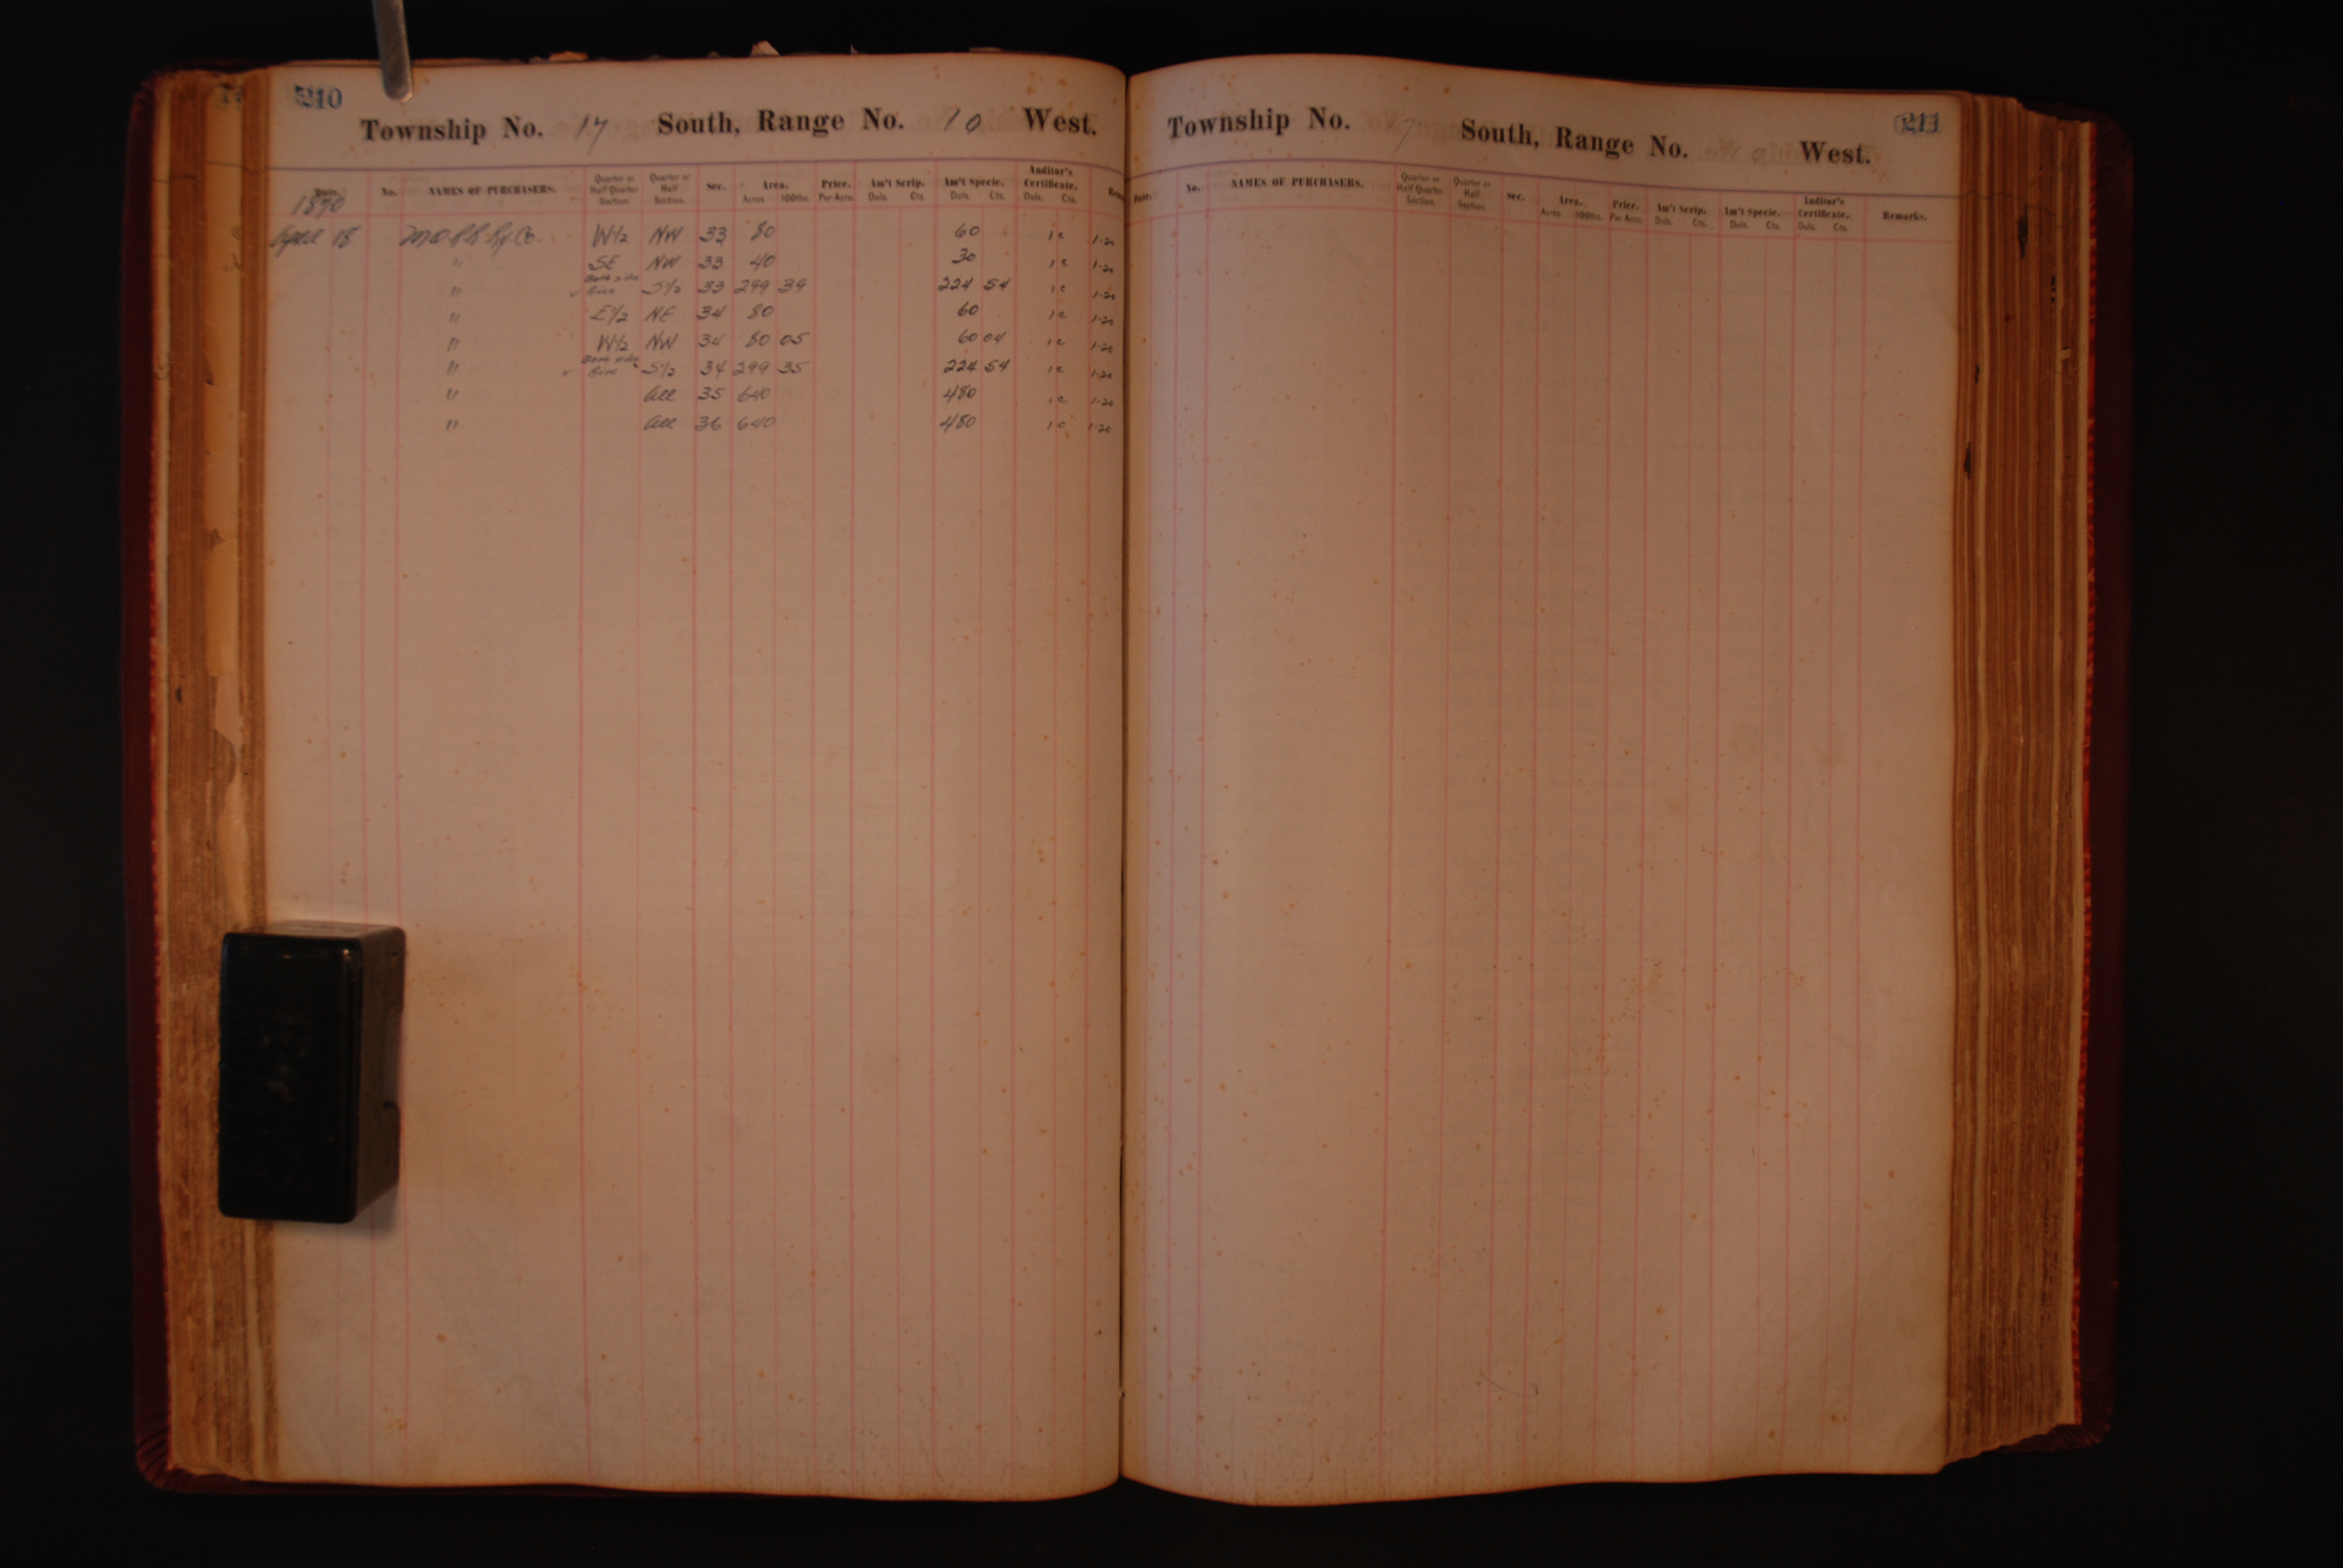 210
Township No. 17 South, Range No. 10 West.
Date. No. NAMES OF PURCHASERS. Quarter or Half Quarter Section. Quarter or Half Section. Sec. Area. Acres 100ths. Price. Per Acre. Am't Scrip. Dols. Cts. Am't Specie. Dols. Cts. Auditor's Certificate. Dols. Cts.
1870
April 18 M & O R.R. Co. W½ NW 33 80 60 1-20
" SE NW 33 40 30 1-20
" Both sides River S½ 33 299 39 224 54 1-20
" E½ NE 34 80 60 1-20
" W½ NW 34 80 05 60 04 1-20
" Both sides River S½ 34 299 35 224 54 1-20
" All 35 640 480 1-20
" All 36 640 480 1-20
211
Township No. South, Range No. West.
Date. No. NAMES OF PURCHASERS. Quarter or Half Quarter Section. Quarter or Half Section. Sec. Area. Acres 100ths. Price. Per Acre. Am't Scrip. Dols. Cts. Am't Specie. Dols. Cts. Auditor's Certificate. Dols. Cts. Remarks.